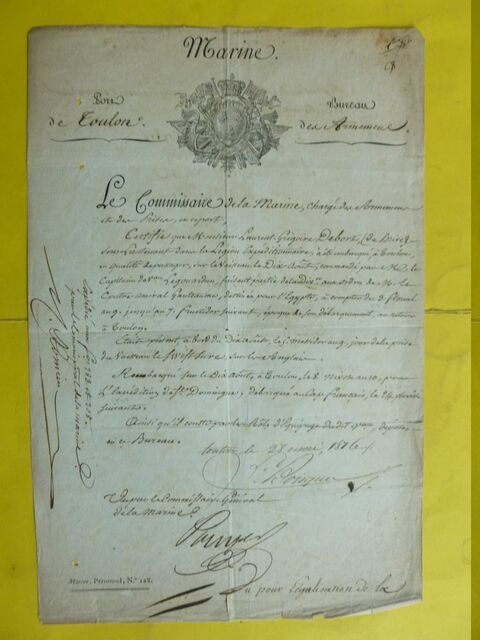 Marine.
Port
de Toulon.
Bureau
des Armemens
Le Commissaire de la Marine, chargé des Armemens
et des Prises, en ce port.
Certifie que Monsieur Laurent Grégoire Debort, (de Buret)
Sous-Lieutenant dans la Légion Expéditionnaire, a été embarqué à Toulon,
en qualité de passager, sur le Vaisseau le Dix Août, commandé par M. le
Capitaine de Vau. Legouardun, faisant partie de la don aux ordres de M. le
Contre-amiral Ganteaume, destinée pour l'Egypte, à compter du 3 floréal
an 9. jusqu'au 7. fructidor suivant, époque de son débarquement, au retour
à Toulon.
Etait présent, à bord du Dix Août, le 5 messidor an 9, jour de la prise
du Vaisseau le Swifsture sur les Anglais.
Rembarqué sur le Dix Août, à Toulon, le 8 nivose an 10, pour
l'Expédition de St. Domingue, débarqué au Cap français, le 24
suivant.
Ainsi qu'il conste par les Rôles d'Equipage du dit Vau, déposés
en ce Bureau.
Toulon le 28 1816
Vu par le Commissaire Général
de la Marine.
Marine, Personnel, N.° 128.
Vu pour légalisation de la